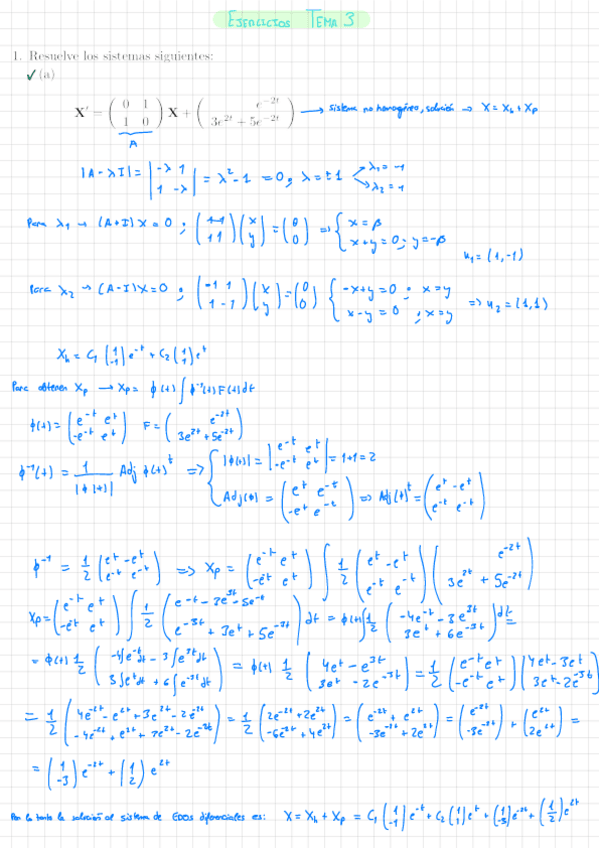 EJERCICIOS TEMA 3
1. Resuelve los sistemas siguientes:
✓ (a)
X' = ( 0 1 ; 1 0 ) X + ( e^{-2t} ; 3e^{2t} + 5e^{-2t} ) → Sistema no homogéneo, solución → X = X_h + X_p
A
|A-λI| = | -λ 1 ; 1 -λ | = λ² - 1 = 0 ; λ = ±1 λ₁ = -1 λ₂ = 1
Para λ₁ → (A+I)X = 0 ; ( 1 1 ; 1 1 ) ( x ; y ) = ( 0 ; 0 ) ⇒ { x = β ; x+y = 0 ; y = -β
u₁ = (1,-1)
Para λ₂ → (A-I)X = 0 ; ( -1 1 ; 1 -1 ) ( x ; y ) = ( 0 ; 0 ) { -x+y = 0 ; x = y ; x-y = 0 ; x = y ⇒ u₂ = (1,1)
X_h = C₁ ( 1 ; -1 ) e^{-t} + C₂ ( 1 ; 1 ) e^{t}
Para obtener X_p → X_p = ϕ(t) ∫ ϕ⁻¹(t) F(t) dt
ϕ(t) = ( e^{-t} e^{t} ; -e^{-t} e^{t} ) F = ( e^{-2t} ; 3e^{2t} + 5e^{-2t} )
ϕ⁻¹(t) = 1/|ϕ(t)| Adj ϕ(t)^t ⇒ { |ϕ(t)| = | e^{-t} e^{t} ; -e^{-t} e^{t} | = 1+1 = 2
Adj(ϕ) = ( e^{t} e^{-t} ; -e^{t} e^{-t} ) ⇒ Adj(ϕ)^t = ( e^{t} -e^{t} ; e^{-t} e^{-t} )
ϕ⁻¹ = 1/2 ( e^{t} -e^{t} ; e^{-t} e^{-t} ) ⇒ X_p = ( e^{-t} e^{t} ; -e^{-t} e^{t} ) ∫ 1/2 ( e^{t} -e^{t} ; e^{-t} e^{-t} ) ( e^{-2t} ; 3e^{2t} + 5e^{-2t} )
X_p = ( e^{-t} e^{t} ; -e^{-t} e^{t} ) ∫ 1/2 ( e^{-t} - 3e^{3t} - 5e^{-t} ; e^{-3t} + 3e^{t} + 5e^{-3t} ) dt = ϕ(t) ∫ 1/2 ( -4e^{-t} - 3e^{3t} ; 3e^{t} + 6e^{-3t} ) dt =
= ϕ(t) 1/2 ( -4∫e^{-t}dt - 3∫e^{3t}dt ; 3∫e^{t}dt + 6∫e^{-3t}dt ) = ϕ(t) 1/2 ( 4e^{-t} - e^{3t} ; 3e^{t} - 2e^{-3t} ) = 1/2 ( e^{-t} e^{t} ; -e^{-t} e^{t} )
= 1/2 ( 4e^{-2t} - e^{2t} + 3e^{2t} - 2e^{-2t} ; -4e^{-2t} + e^{2t} + 3e^{2t} - 2e^{-2t} ) = 1/2 ( 2e^{-2t} + 2e^{2t} ; -6e^{-2t} + 4e^{2t} ) = ( e^{-2t} + e^{2t} ; -3e^{-2t} + 2e^{2t} ) = ( e^{-2t} ; -3e^{-2t} ) + ( e^{2t} ; 2e^{2t} ) =
= ( 1 ; -3 ) e^{-2t} + ( 1 ; 2 ) e^{2t}
Por lo tanto la solución al sistema de EDOs diferenciales es: X = X_h + X_p = C₁ ( 1 ; -1 ) e^{-t} + C₂ ( 1 ; 1 ) e^{t} + ( 1 ; -3 ) e^{-2t} + ( 1 ; 2 ) e^{2t}